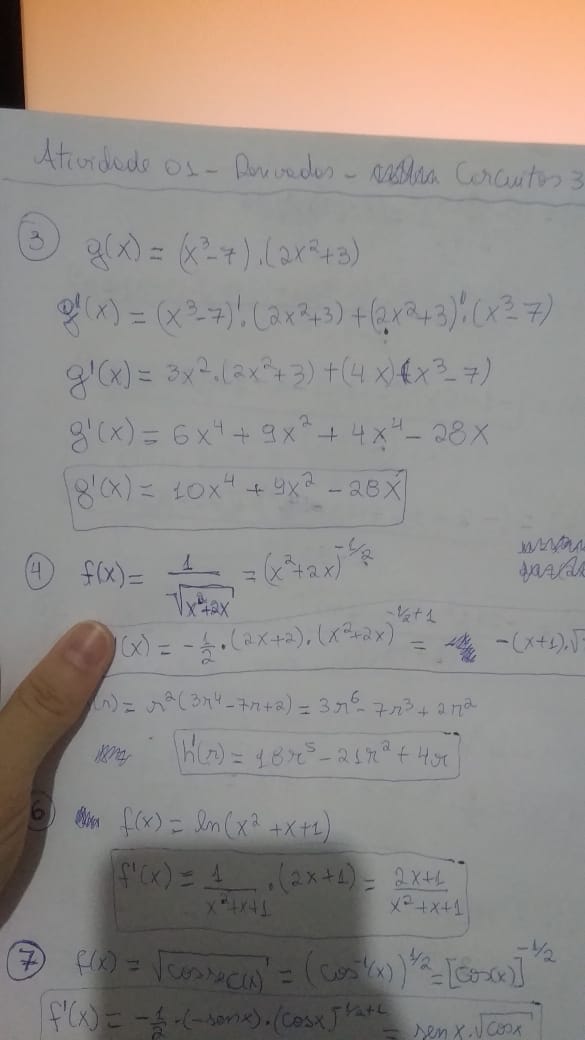 Atividade 01 - Derivadas - Circuitos 3
3 g(x) = (x³-7).(2x²+3)
g'(x) = (x³-7)'.(2x²+3) + (2x²+3)'.(x³-7)
g'(x) = 3x².(2x²+3) + (4x)(x³-7)
g'(x) = 6x⁴ + 9x² + 4x⁴ - 28x
g'(x) = 10x⁴ + 9x² - 28x
4 f(x) = 1/√(x²+2x) = (x²+2x)^(-1/2)
'(x) = -1/2 . (2x+2).(x²+2x)^(-1/2+1) = -(x+1).√
(r) = r²(3r⁴-7r+2) = 3r⁶-7r³+2r²
h'(r) = 18r⁵-21r²+4r
6 f(x) = ln(x²+x+1)
f'(x) = 1/(x²+x+1) . (2x+1) = (2x+1)/(x²+x+1)
7 f(x) = √(x) = (cos⁻¹(x))^(1/2) = [cos(x)]^(-1/2)
f'(x) = -1/2 .(-senx).(cosx)^(-1/2+1) = senx.√cosx